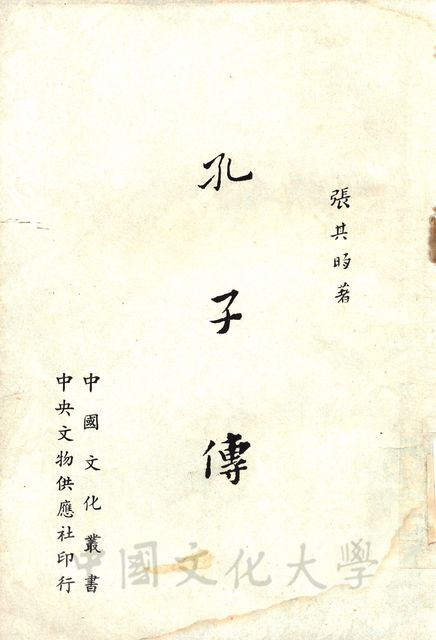 張其昀著
孔子傳
中國文化叢書
中央文物供應社印行
中國文化大學